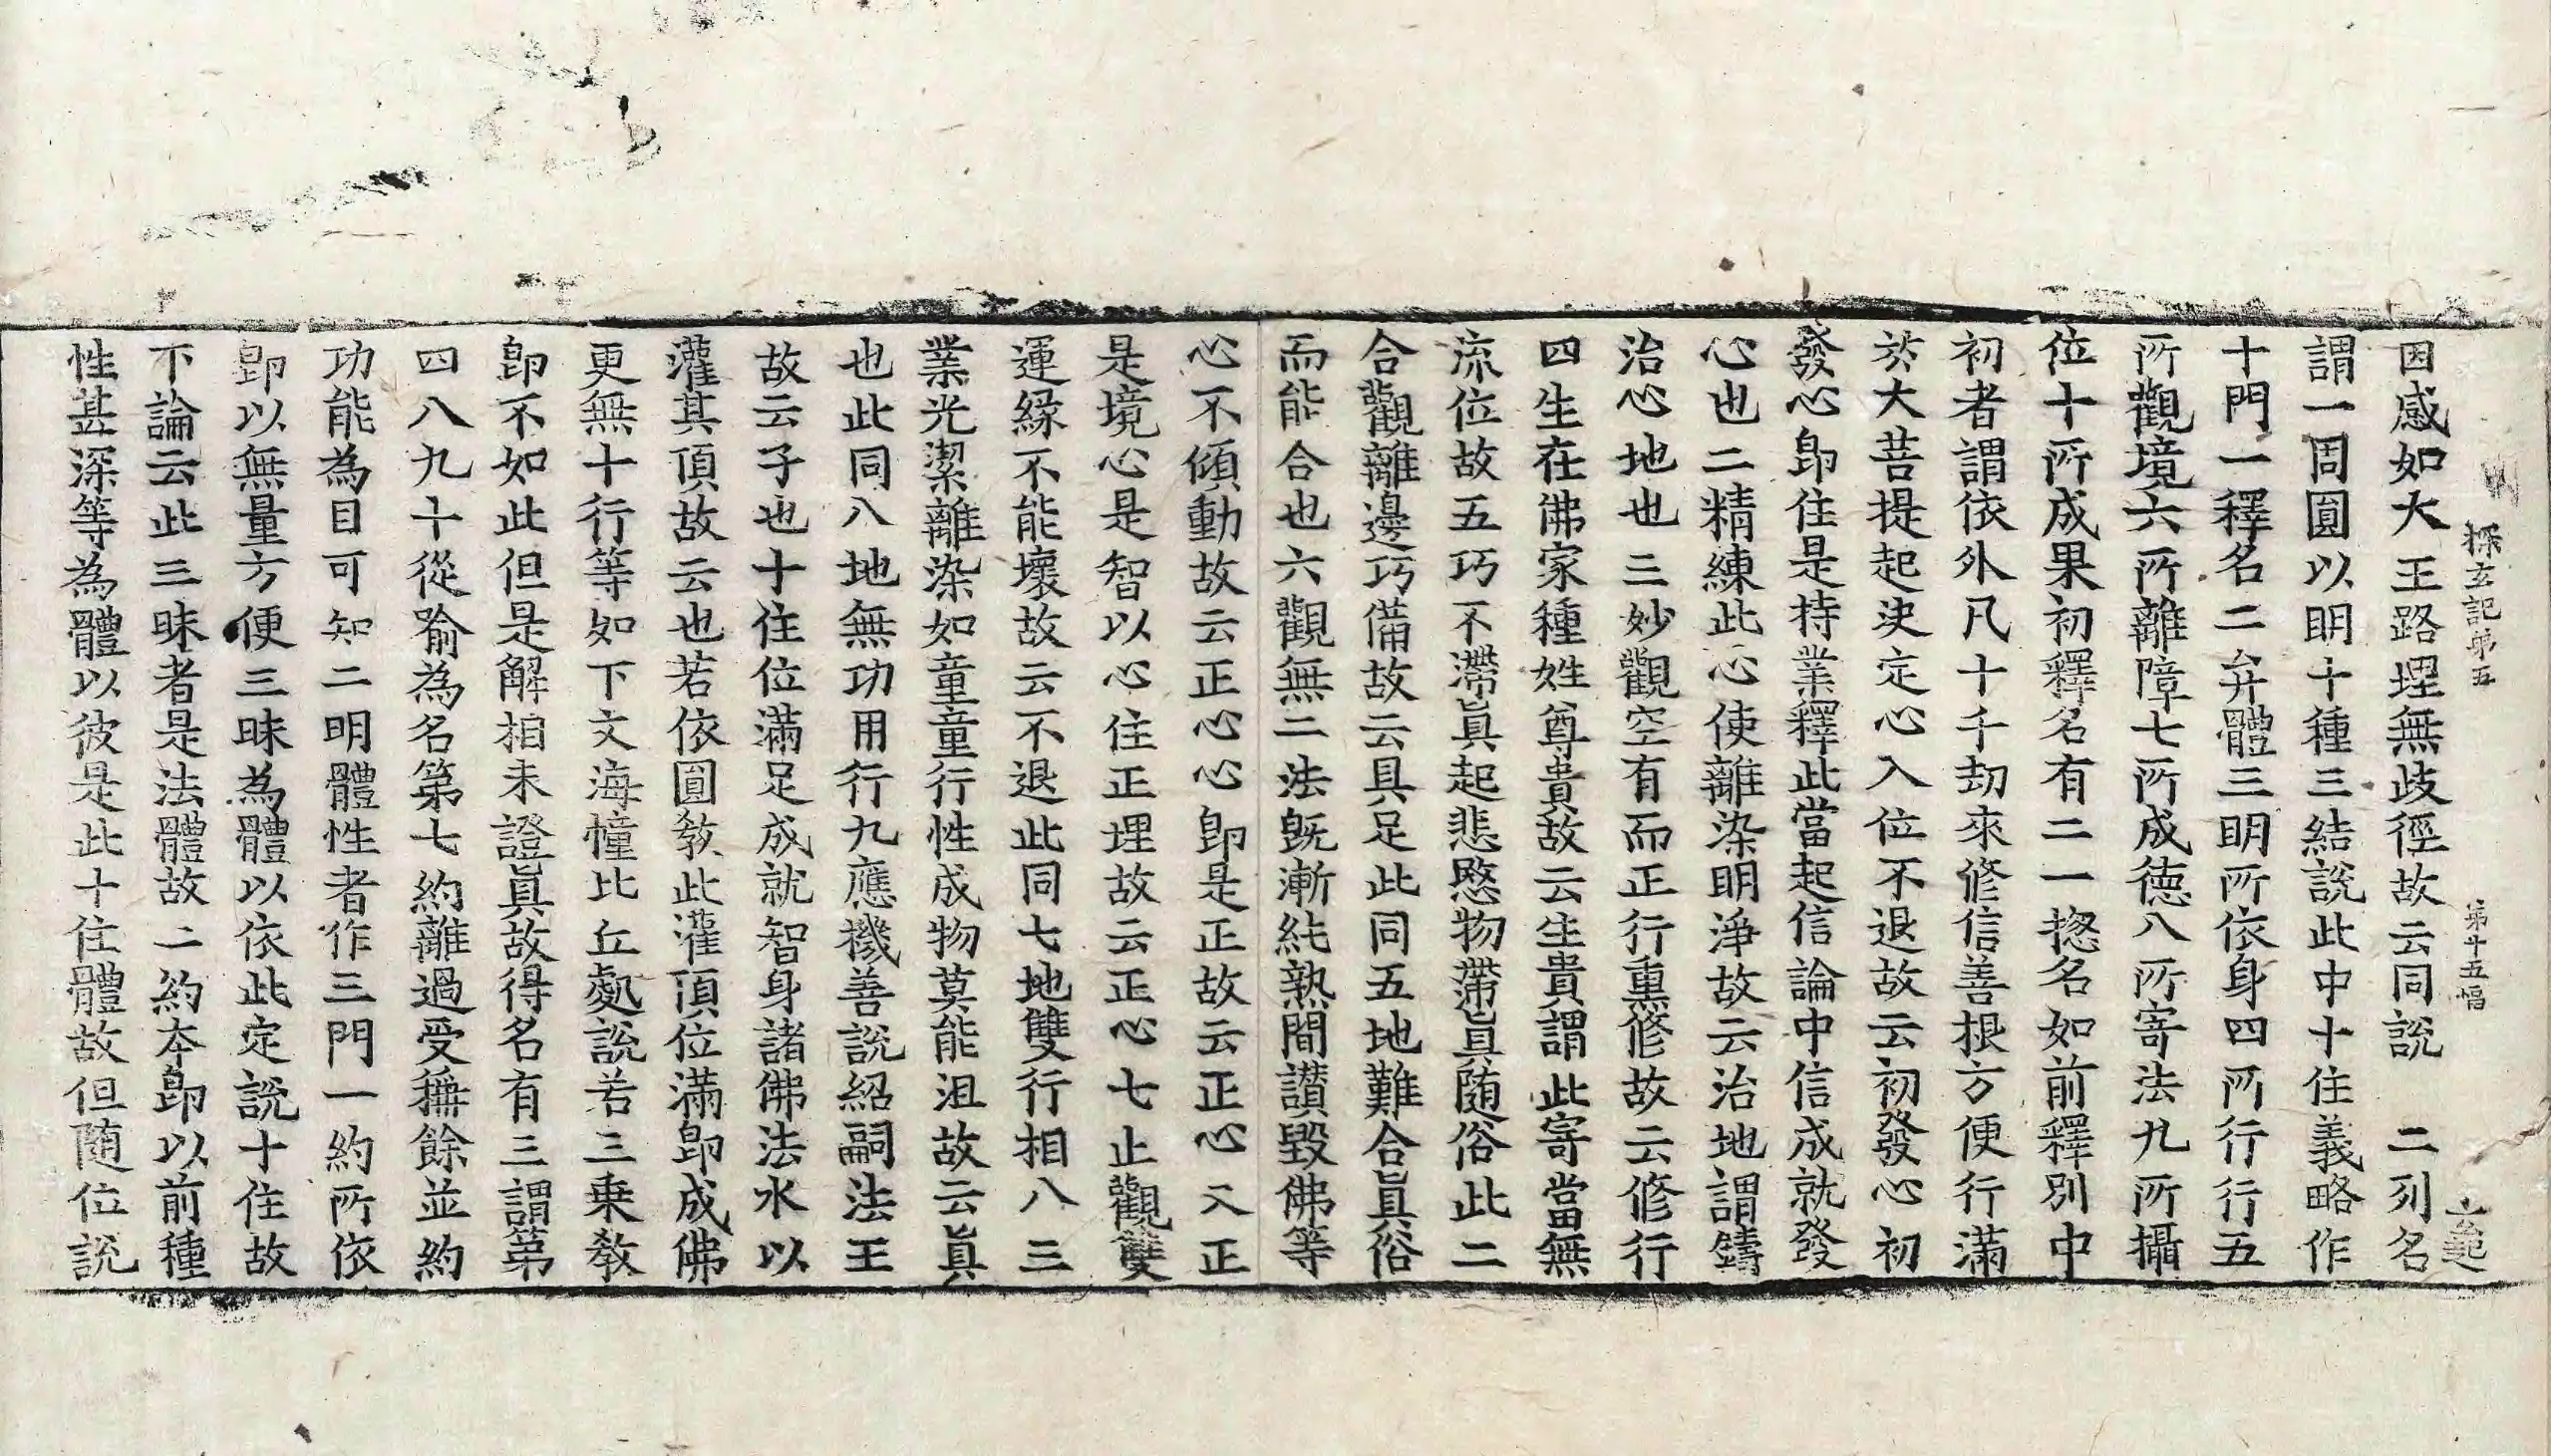 探玄記第五 第十五幅 玄起
因感如大王路理無歧徑故云同說 二列名
謂一周圓以明十種三結說此中十住義略作
十門一釋名二弁體三明所依身四所行行五
所觀境六所離障七所成德八所寄法九所攝
位十所成果初釋名有二一揔名如前釋別中
初者謂依外凡十千劫來修信善根方便行滿
於大菩提起決定心入位不退故云初發心初
發心即住是持業釋此當起信論中信成就發
心也二精練此心使離染明淨故云治地謂鑄
治心地也三妙觀空有而正行熏修故云修行
四生在佛家種姓尊貴故云生貴謂此寄當無
流位故五巧不滯眞起悲愍物滯眞随俗此二
合觀離邊巧備故云具足此同五地難合眞俗
而能合也六觀無二法旣漸純熟聞讃毀佛等
心不傾動故云正心心即是正故云正心又正
是境心是智以心住正理故云正心七止觀雙
運緣不能壞故云不退此同七地雙行相八三
業光潔離染如童童行性成物莫能沮故云眞
也此同八地無功用行九應機善說紹嗣法王
故云子也十住位滿足成就智身諸佛法水以
灌其頂故云也若依圓教此灌頂位滿即成佛
更無十行等如下文海幢比丘處說若三乘教
即不如此但是解相未證眞故得名有三謂第
四八九十從喻為名第七約離過受稱餘並約
功能為目可知二明體性者作三門一約所依
即以無量方便三昧為體以依此定說十住故
不論云此三昧者是法體故二約本即以前種
性甚深等為體以彼是此十住體故但随位說